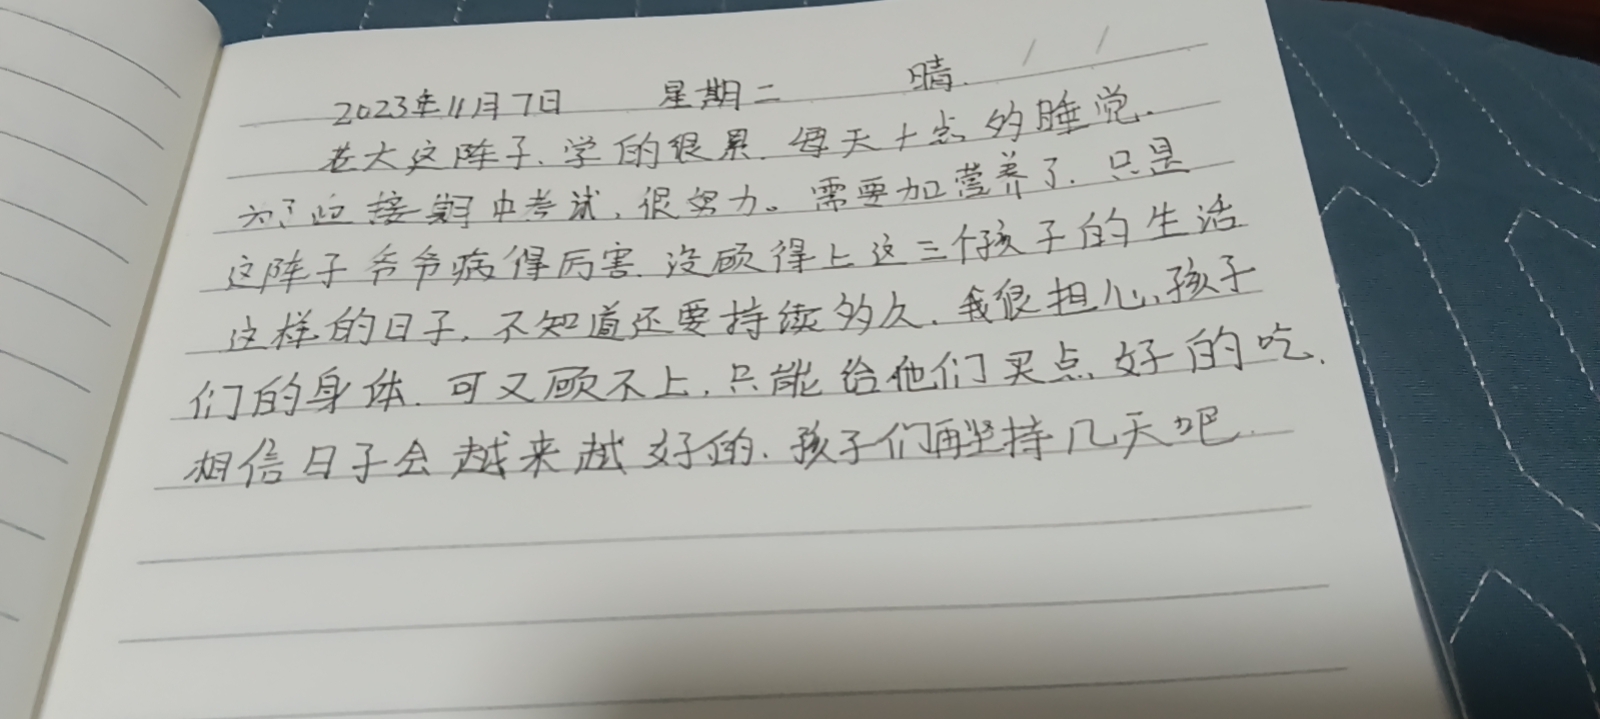 2023年11月7日 星期二 晴.
老大这阵子、学的很累.每天十点的睡觉.
为了迎接期中考试、很努力。需要加营养了.只是
这阵子爷爷病得厉害.没顾得上这三个孩子的生活
这样的日子、不知道还要持续多久.我很担心、孩子
们的身体.可又顾不上.只能给他们买点好的吃.
相信日子会越来越好的.孩子们再坚持几天吧.